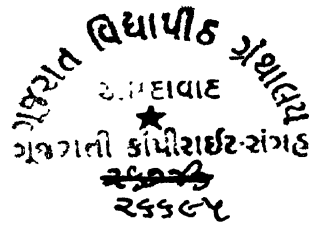 ગૂજરાત વિદ્યાપીઠ ગ્રંથાલય
અમદાવાદ
ગૂજરાતી કૉપીરાઈટ-સંગ્રહ
૨૬૬૯૫